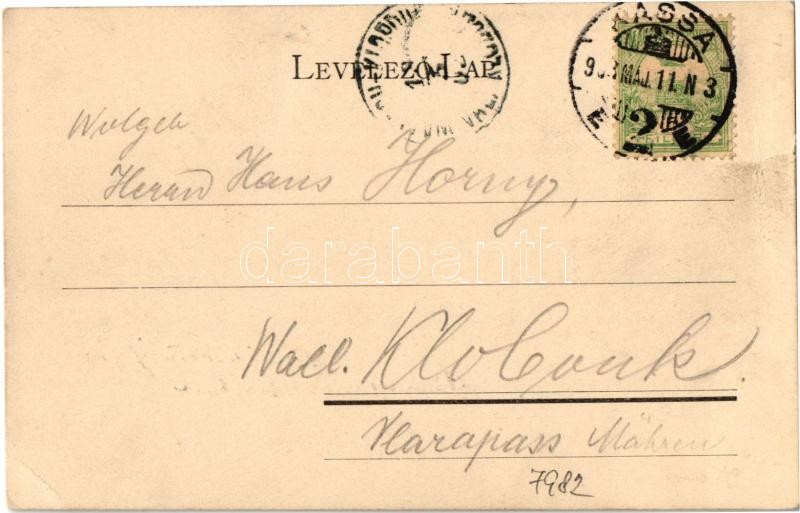 LEVELEZŐ-LAP
KASSA
903 MÁJ. 11. N 3
2
Herrn Hans Horny,
darabanth
Wall. Klobouk
Vlarapass Mähren
7982